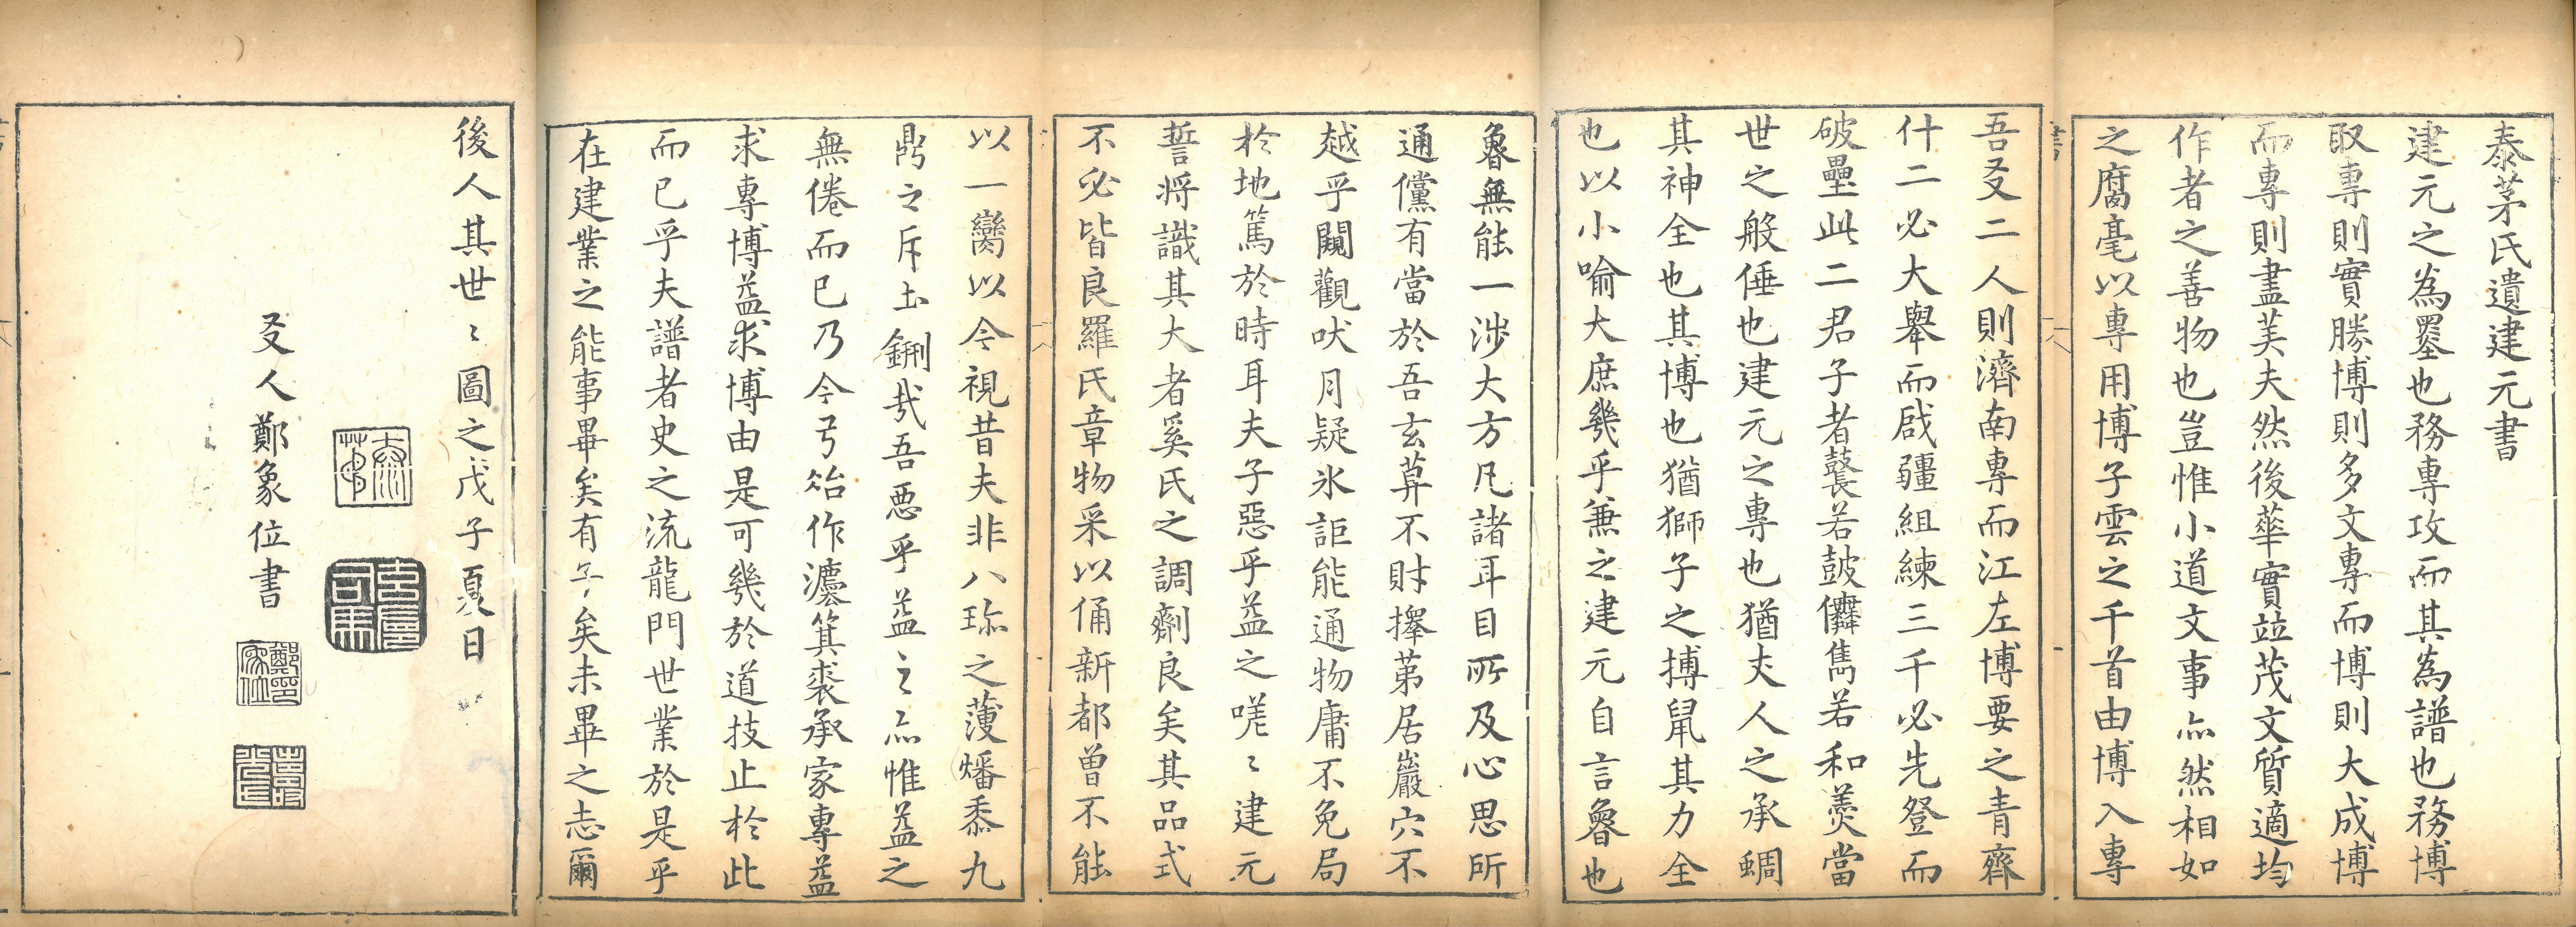 泰茅氏遺建元書
建元之為墨也務專攻而其為譜也務博
取專則實勝博則多文專而博則大成博
而專則盡美夫然後華實竝茂文質適均
作者之善物也豈惟小道文事亦然相如
之腐毫以專用博子雲之千首由博入專
吾爻二人則濟南專而江左博要之青齊
什二必大舉而啟疆組練三千必先登而
破壘此二君子者鼚若鼓儛雋若和羹當
世之般倕也建元之專也猶夫人之承蜩
其神全也其博也猶獅子之搏鼠其力全
也以小喻大庶幾乎兼之建元自言魯也
魯無能一涉大方凡諸耳目所及心思所
通儻有當於吾玄草不財擇第居巖穴不
越乎闚觀吠月疑氷詎能通物庸不免局
於地篤於時耳夫子惡乎益之嘆〻建元
誓將識其大者奚氏之調劑良矣其品式
不必皆良羅氏章物采以俑新都曾不能
以一臠以今視昔夫非八珎之薓燔黍九
鼎之斥土鉶哉吾惡乎益之亦惟益之
無倦而已乃今弓冶作瀍箕裘承家專益
求專博益求博由是可幾於道技止於此
而已乎夫譜者史之流龍門世業於是乎
在建業之能事畢矣有子矣未畢之志爾
後人其世〻圖之戊子夏日
爻人鄭象位書